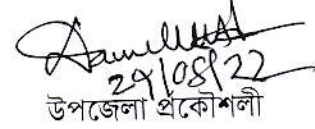 29/08/22
উপজেলা প্রকৌশলী